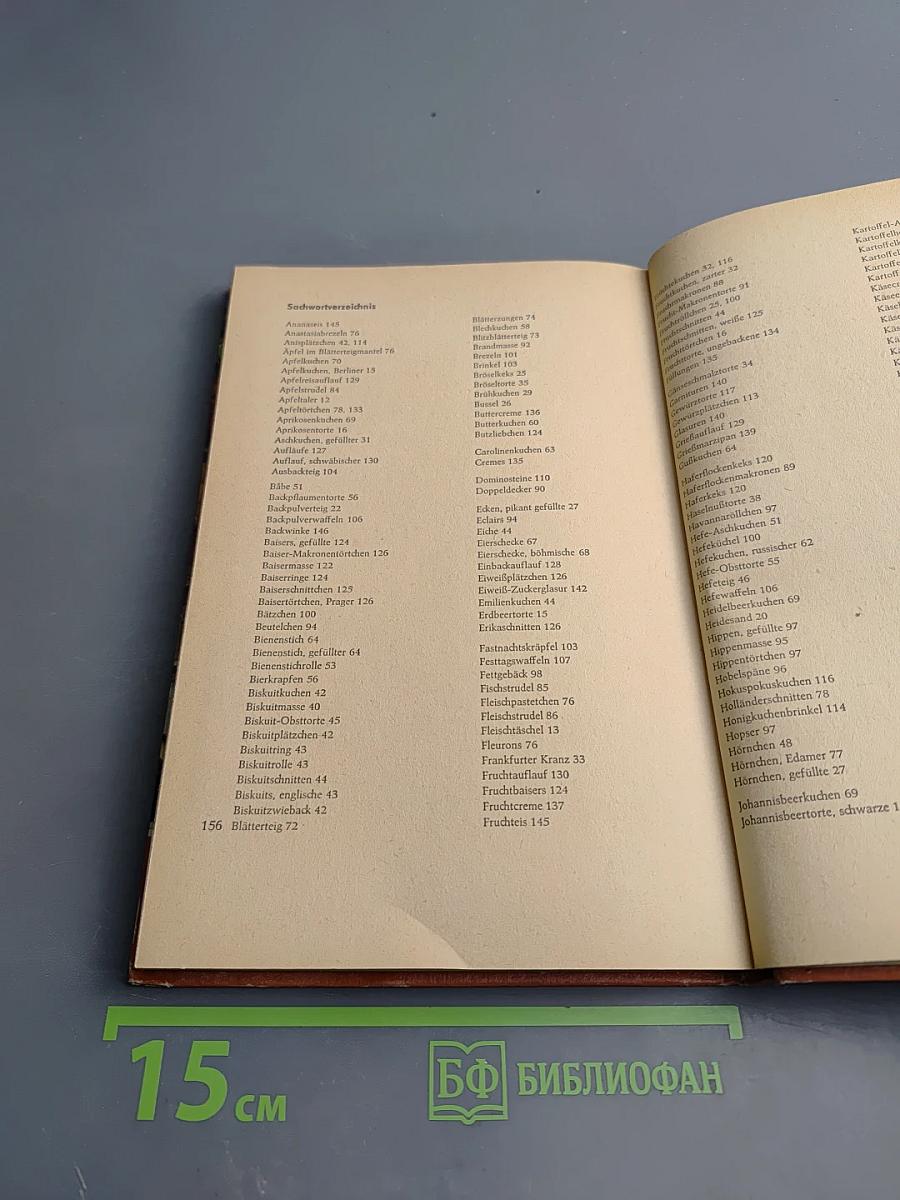 Sachwortverzeichnis
Ananaseis 145
Anastasiabrezeln 76
Anisplätzchen 42, 114
Äpfel im Blätterteigmantel 76
Apfelkuchen 70
Apfelkuchen, Berliner 15
Apfelreisauflauf 129
Apfelstrudel 84
Apfeltaler 12
Apfeltörtchen 78, 133
Aprikosenkuchen 69
Aprikosentorte 16
Aschkuchen, gefüllter 31
Aufläufe 127
Auflauf, schwäbischer 130
Ausbackteig 104
Bäbe 51
Backpflaumentorte 56
Backpulverteig 22
Backpulverwaffeln 106
Backwinke 146
Baisers, gefüllte 124
Baiser-Makronentörtchen 126
Baisermasse 122
Baiserringe 124
Baiserschnittchen 125
Baisertörtchen, Prager 126
Bätzchen 100
Beutelchen 94
Bienenstich 64
Bienenstich, gefüllter 64
Bienenstichrolle 53
Bierkrapfen 56
Biskuitkuchen 42
Biskuitmasse 40
Biskuit-Obsttorte 45
Biskuitplätzchen 42
Biskuitring 43
Biskuitrolle 43
Biskuitschnitten 44
Biskuits, englische 43
Biskuitzwieback 42
156 Blätterteig 72
Blätterzungen 74
Blechkuchen 58
Blitzblätterteig 73
Brandmasse 92
Brezeln 101
Brinkel 103
Bröselkeks 25
Bröseltorte 35
Brühkuchen 29
Bussel 26
Buttercreme 136
Butterkuchen 60
Butzliebchen 124
Carolinenkuchen 63
Cremes 135
Dominosteine 110
Doppeldecker 90
Ecken, pikant gefüllte 27
Eclairs 94
Eiche 44
Eierschecke 67
Eierschecke, böhmische 68
Einbackauflauf 128
Eiweißplätzchen 126
Eiweiß-Zuckerglasur 142
Emilienkuchen 44
Erdbeertorte 15
Erikaschnitten 126
Fastnachtskräpfel 103
Festtagswaffeln 107
Fettgebäck 98
Fischstrudel 85
Fleischpastetchen 76
Fleischstrudel 86
Fleischtäschel 13
Fleurons 76
Frankfurter Kranz 33
Fruchtauflauf 130
Fruchtbaisers 124
Fruchtcreme 137
Fruchteis 145
32, 116
zarter 32
88
91
25, 100
44
weiße 125
Fruchttörtchen 16
ungebackene 134
Füllungen 135
Gänseschmalztorte 34
Garnituren 140
Gewürztorte 117
Gewürzplätzchen 113
Glasuren 140
Grießauflauf 129
Grießmarzipan 139
Gußkuchen 64
Haferflockenkeks 120
Haferflockenmakronen 89
Haferkeks 120
Haselnußtorte 38
Havannaröllchen 97
Hefe-Aschkuchen 51
Hefeküchel 100
Hefekuchen, russischer 62
Hefe-Obsttorte 55
Hefeteig 46
Hefewaffeln 106
Heidelbeerkuchen 69
Heidesand 20
Hippen, gefüllte 97
Hippenmasse 95
Hippentörtchen 97
Hobelspäne 96
Hokuspokuskuchen 116
Holländerschnitten 78
Honigkuchenbrinkel 114
Hopser 97
Hörnchen 48
Hörnchen, Edamer 77
Hörnchen, gefüllte 27
Johannisbeerkuchen 69
Johannisbeertorte, schwarze 1
Kartoffel-A
15 см
БФ БИБЛИОФАН